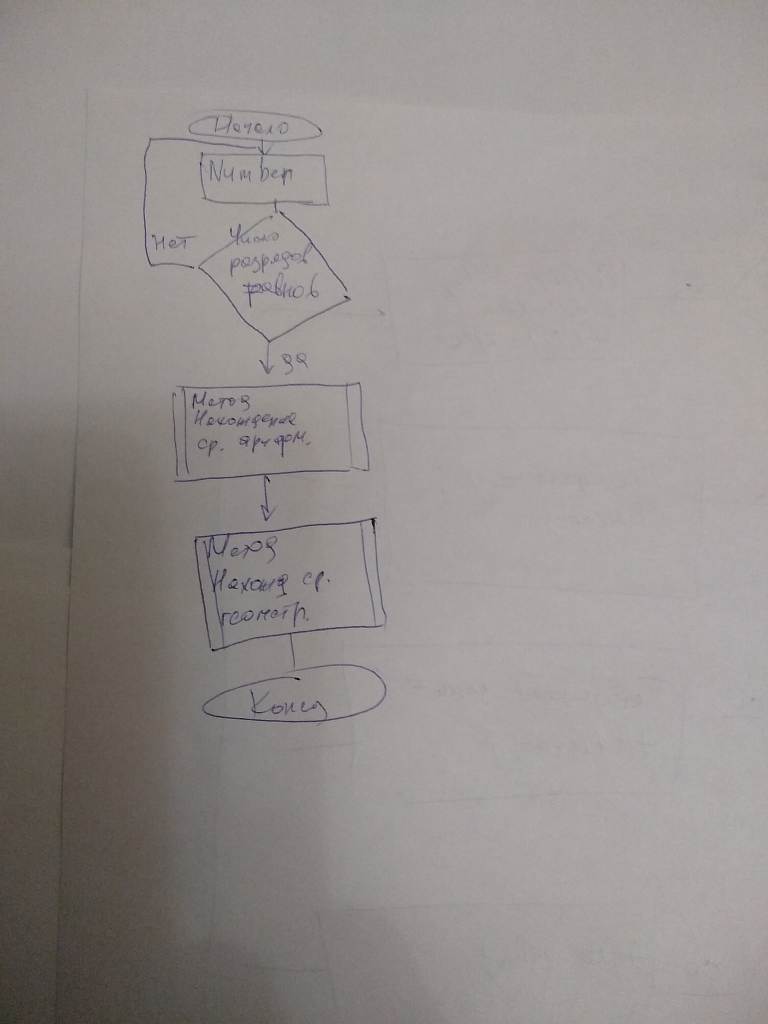 Начало
Number
Нет
Число
разрядов
равно 6
да
Метод
Нахождения
ср. арифм.
Метод
Нахожд ср.
геометр.
Конец